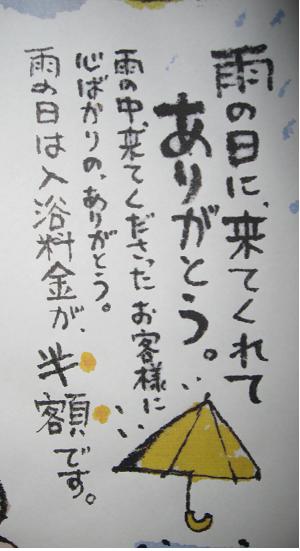 雨の日に、来てくれて
ありがとう。
雨の中、来てくださったお客様に
心ばかりの、ありがとう。
雨の日は入浴料金が、半額です。